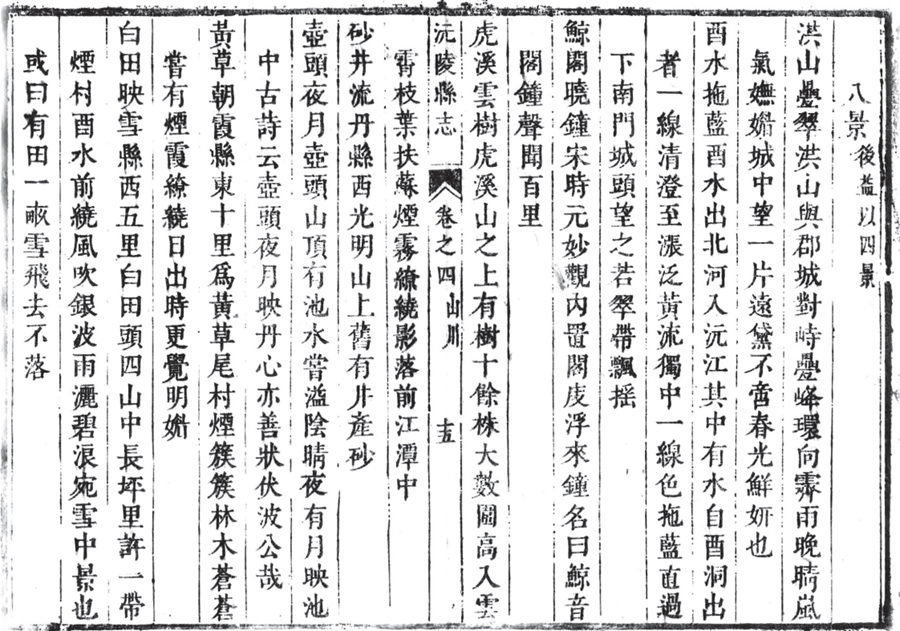 八景後益以四景
洪山疊翠洪山與郡城對峙疊峰環向霽雨晚晴嵐
氣嫵媚城中望一片遠黛不啻春光鮮妍也
酉水拖藍酉水出北河入沅江其中有水自酉洞出
者一線清澄至漲泛黃流獨中一線色拖藍直過
下南門城頭望之若翠帶飄搖
鯨閣曉鐘宋時元妙觀內置閣庋浮來鐘名曰鯨音
閣鐘聲聞百里
虎溪雲樹虎溪山之上有樹十餘株大數圍高入雲
沅陵縣志 卷之四 山川 十五
霄枝葉扶蘇煙霧繚繞影落前江潭中
砂井流丹縣西光明山上舊有井產砂
壺頭夜月壺頭山頂有池水嘗溢陰晴夜有月映池
中古詩云壺頭夜月映丹心亦善狀伏波公哉
黃草朝霞縣東十里爲黃草尾村煙簇簇林木蒼蒼
嘗有煙霞繚繞日出時更覺明媚
白田映雪縣西五里白田頭四山中長坪里許一帶
煙村酉水前繞風吹銀波雨灑碧浪宛雪中景也
或曰有田一畞雪飛去不落